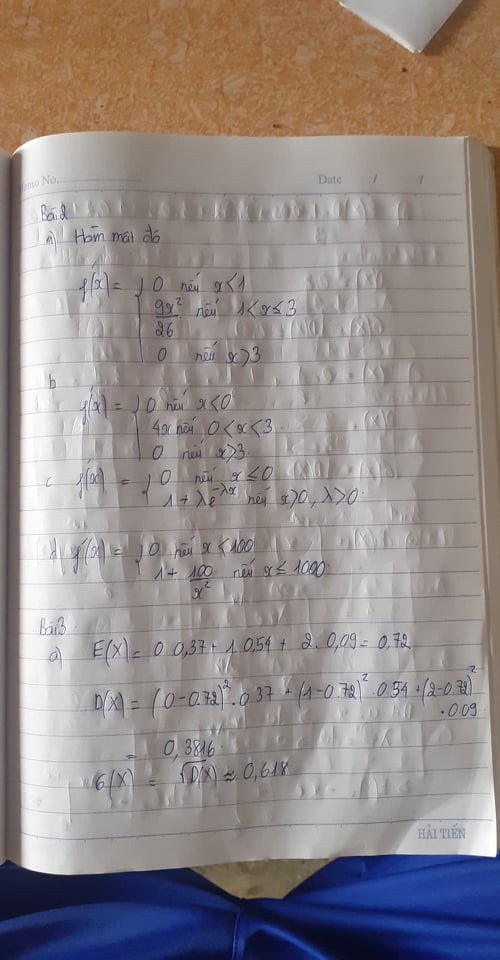 Memo No. Date / /
Bài 2
a) Hàm mật độ
f(x) = { 0 nếu x < 1
9x²/26 nếu 1 < x ≤ 3
0 nếu x > 3
b
f(x) = { 0 nếu x < 0
4x nếu 0 < x < 3
0 nếu x > 3
c f(x) = { 0 nếu x ≤ 0
1 + λe^-λx nếu x > 0, λ > 0
d f(x) = { 0 nếu x < 100
1 + 100/x² nếu x ≤ 1000
Bài 3
a) E(X) = 0.0,37 + 1.0,54 + 2.0,09 = 0,72
D(X) = (0-0.72)².0.37 + (1-0.72)².0.54 + (2-0.72)²
.0.09
= 0,3816
б(X) = √D(X) ≈ 0,618
HẢI TIẾN